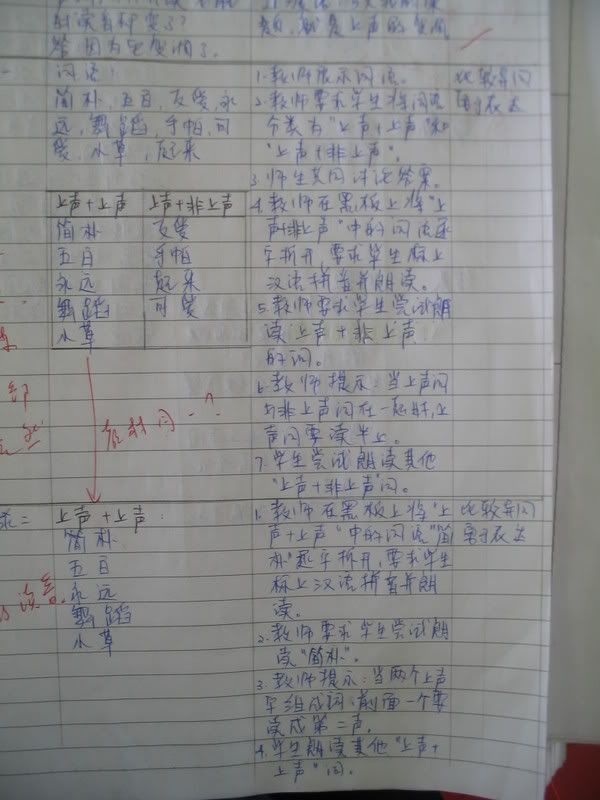 答：因为它变调了。
词语：
简朴、五百、友爱、永
远、舞蹈、手帕、可
爱、水草、起来
上声+上声 上声+非上声
简朴 友爱
五百 手帕
永远 起来
舞蹈 可爱
水草
教材同一?
上声+上声：
简朴
五百
永远
舞蹈
水草
1. 教师展示词语。
2. 教师要求学生将词语
分类为"上声+上声"和
"上声+非上声"。
3. 师生共同讨论答案。
4. 教师在黑板上将"上
声+非上声"中的词语逐
字拆开，要求学生标上
汉语拼音并朗读。
5. 教师要求学生尝试朗
读上声+非上声
的词。
6. 教师提示：当上声词
与非上声词在一起时，上
声词要读半上。
7. 学生尝试朗读其他
"上声+非上声"词。
1. 教师在黑板上将"上
声+上声"中的词语"简
朴"逐字拆开，要求学生
标上汉语拼音并朗
读。
2. 教师要求学生尝试朗
读"简朴"。
3. 教师提示：当两个上声
字组成词，前面一个要
读成第二声。
4. 学生朗读其他"上声+
上声"词。
比较异同
比较异同